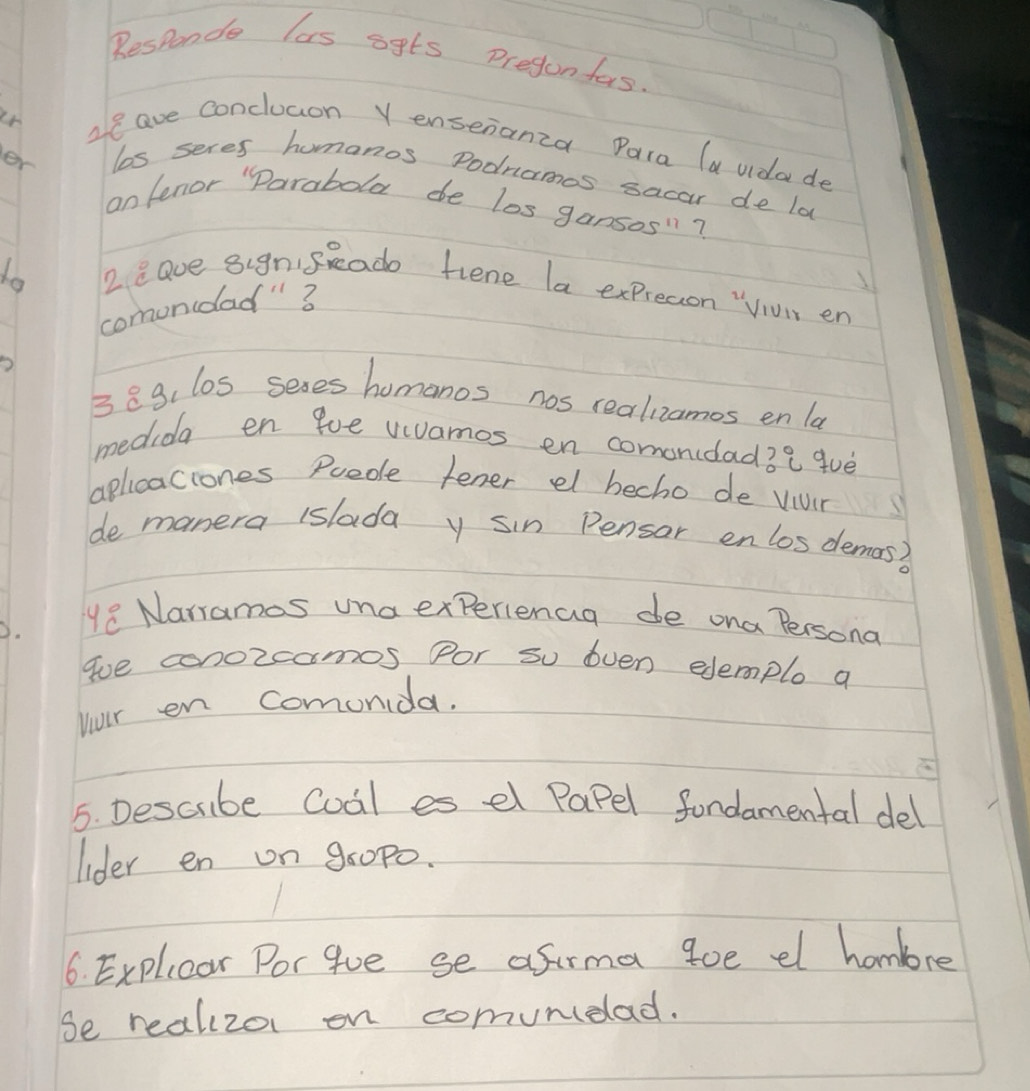 Responde las sgts Preguntas.
1¿ Que conclucion y enseñanza Para la vida de
los seres humanos Podriamos sacar de la
anterior "Parabola de los gansos"?
2¿ Que significado tiene la exPrecion "Vivir en
comunidad"?
3¿ Si los seres humanos nos realizamos en la
medida en que vivamos en comunidad? ¿ qué
aplicaciones Puede tener el hecho de vivir
de manera islada y sin Pensar en los demas?
4¿ Narramos una exPeriencia de una Persona
que conozcamos Por su buen ejemplo a
vivir en comunida.
5. Describe Cuál es el PaPel fundamental del
lider en un gruPo.
6. Explicar Por que se afirma que el hombre
se realiza en comunidad.